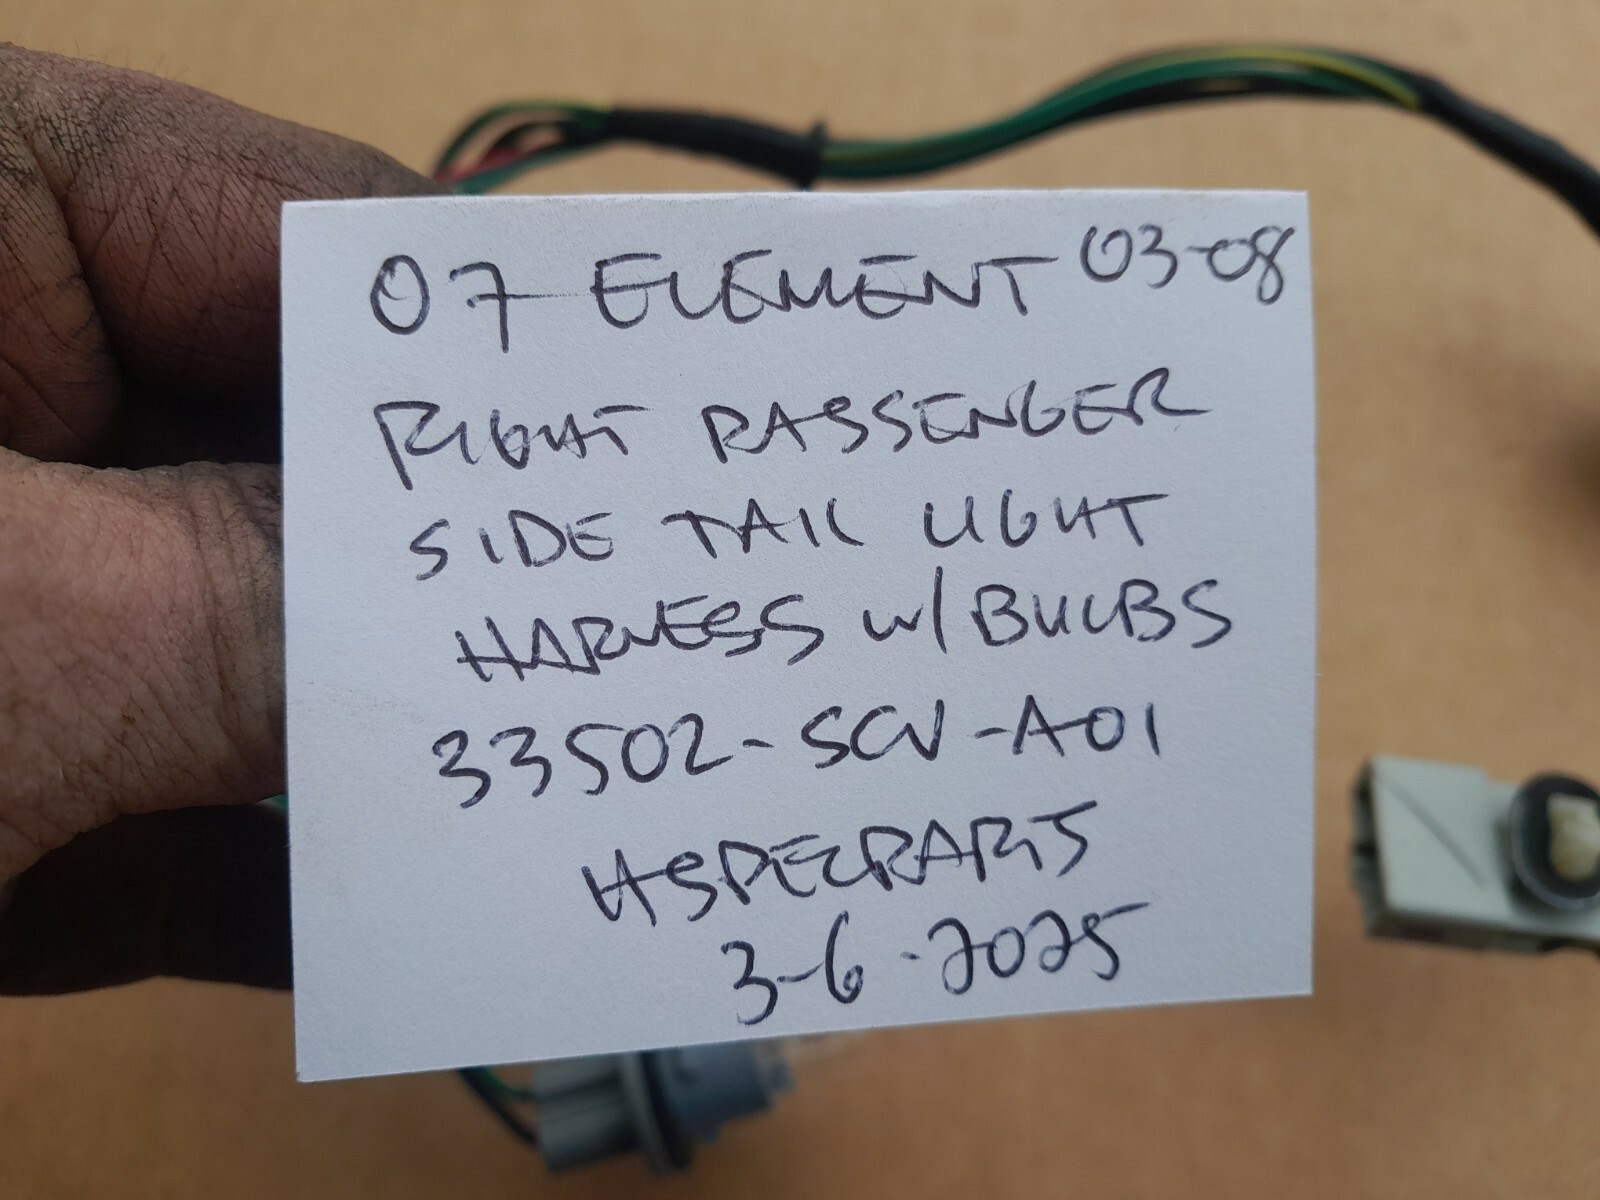 07 ELEMENT 03-08
RIGHT PASSENGER
SIDE TAIL LIGHT
HARNESS W/BULBS
33502-SCV-A01
HSPECPARTS
3-6-2025